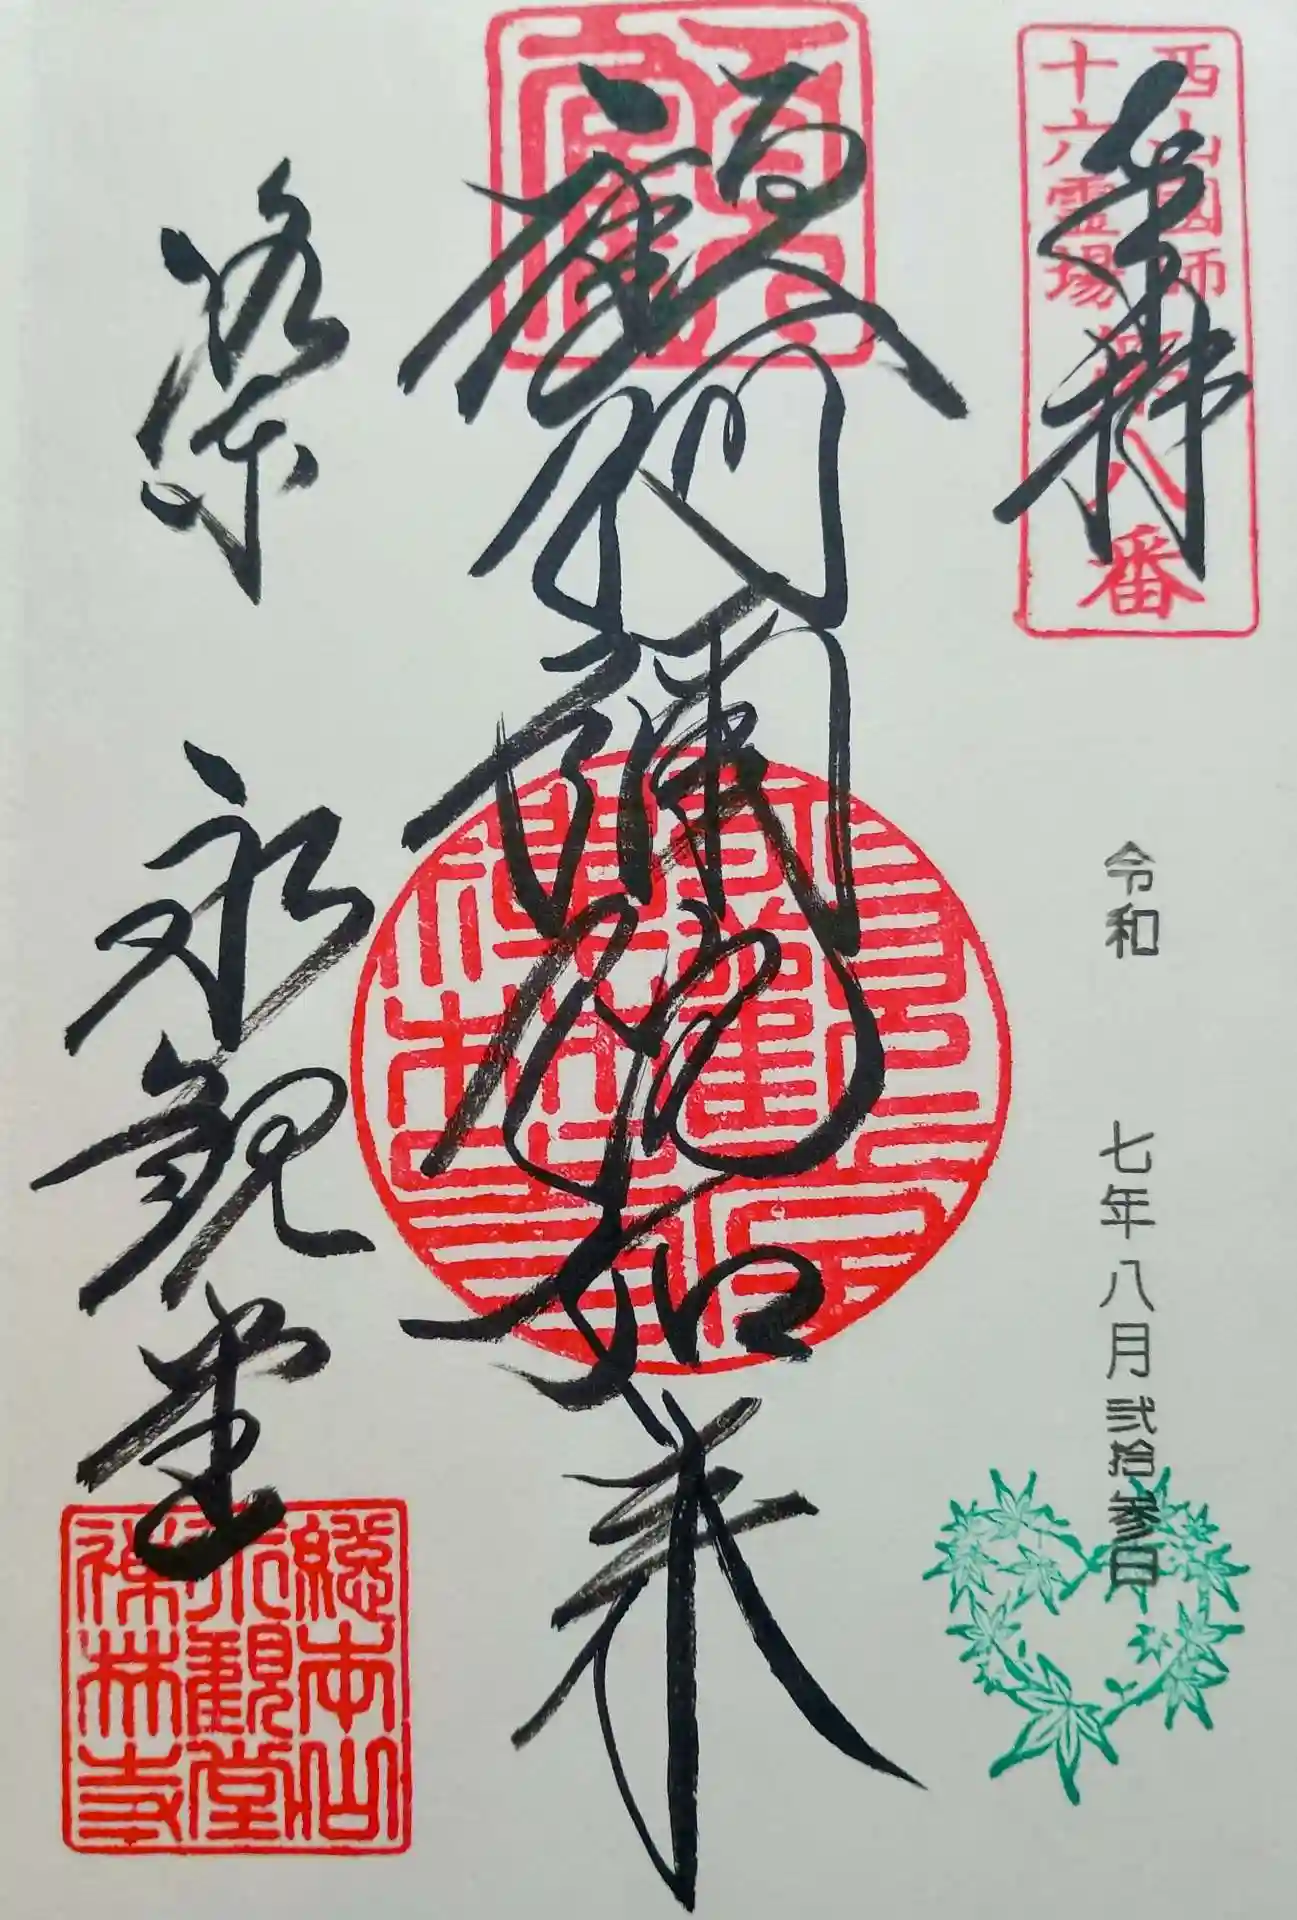 奉拝
西山國師
十六霊場第八番
令和 七年八月弐拾参日
顧阿彌陀如来
洛東 永観堂
總本山
永觀堂
禅林寺